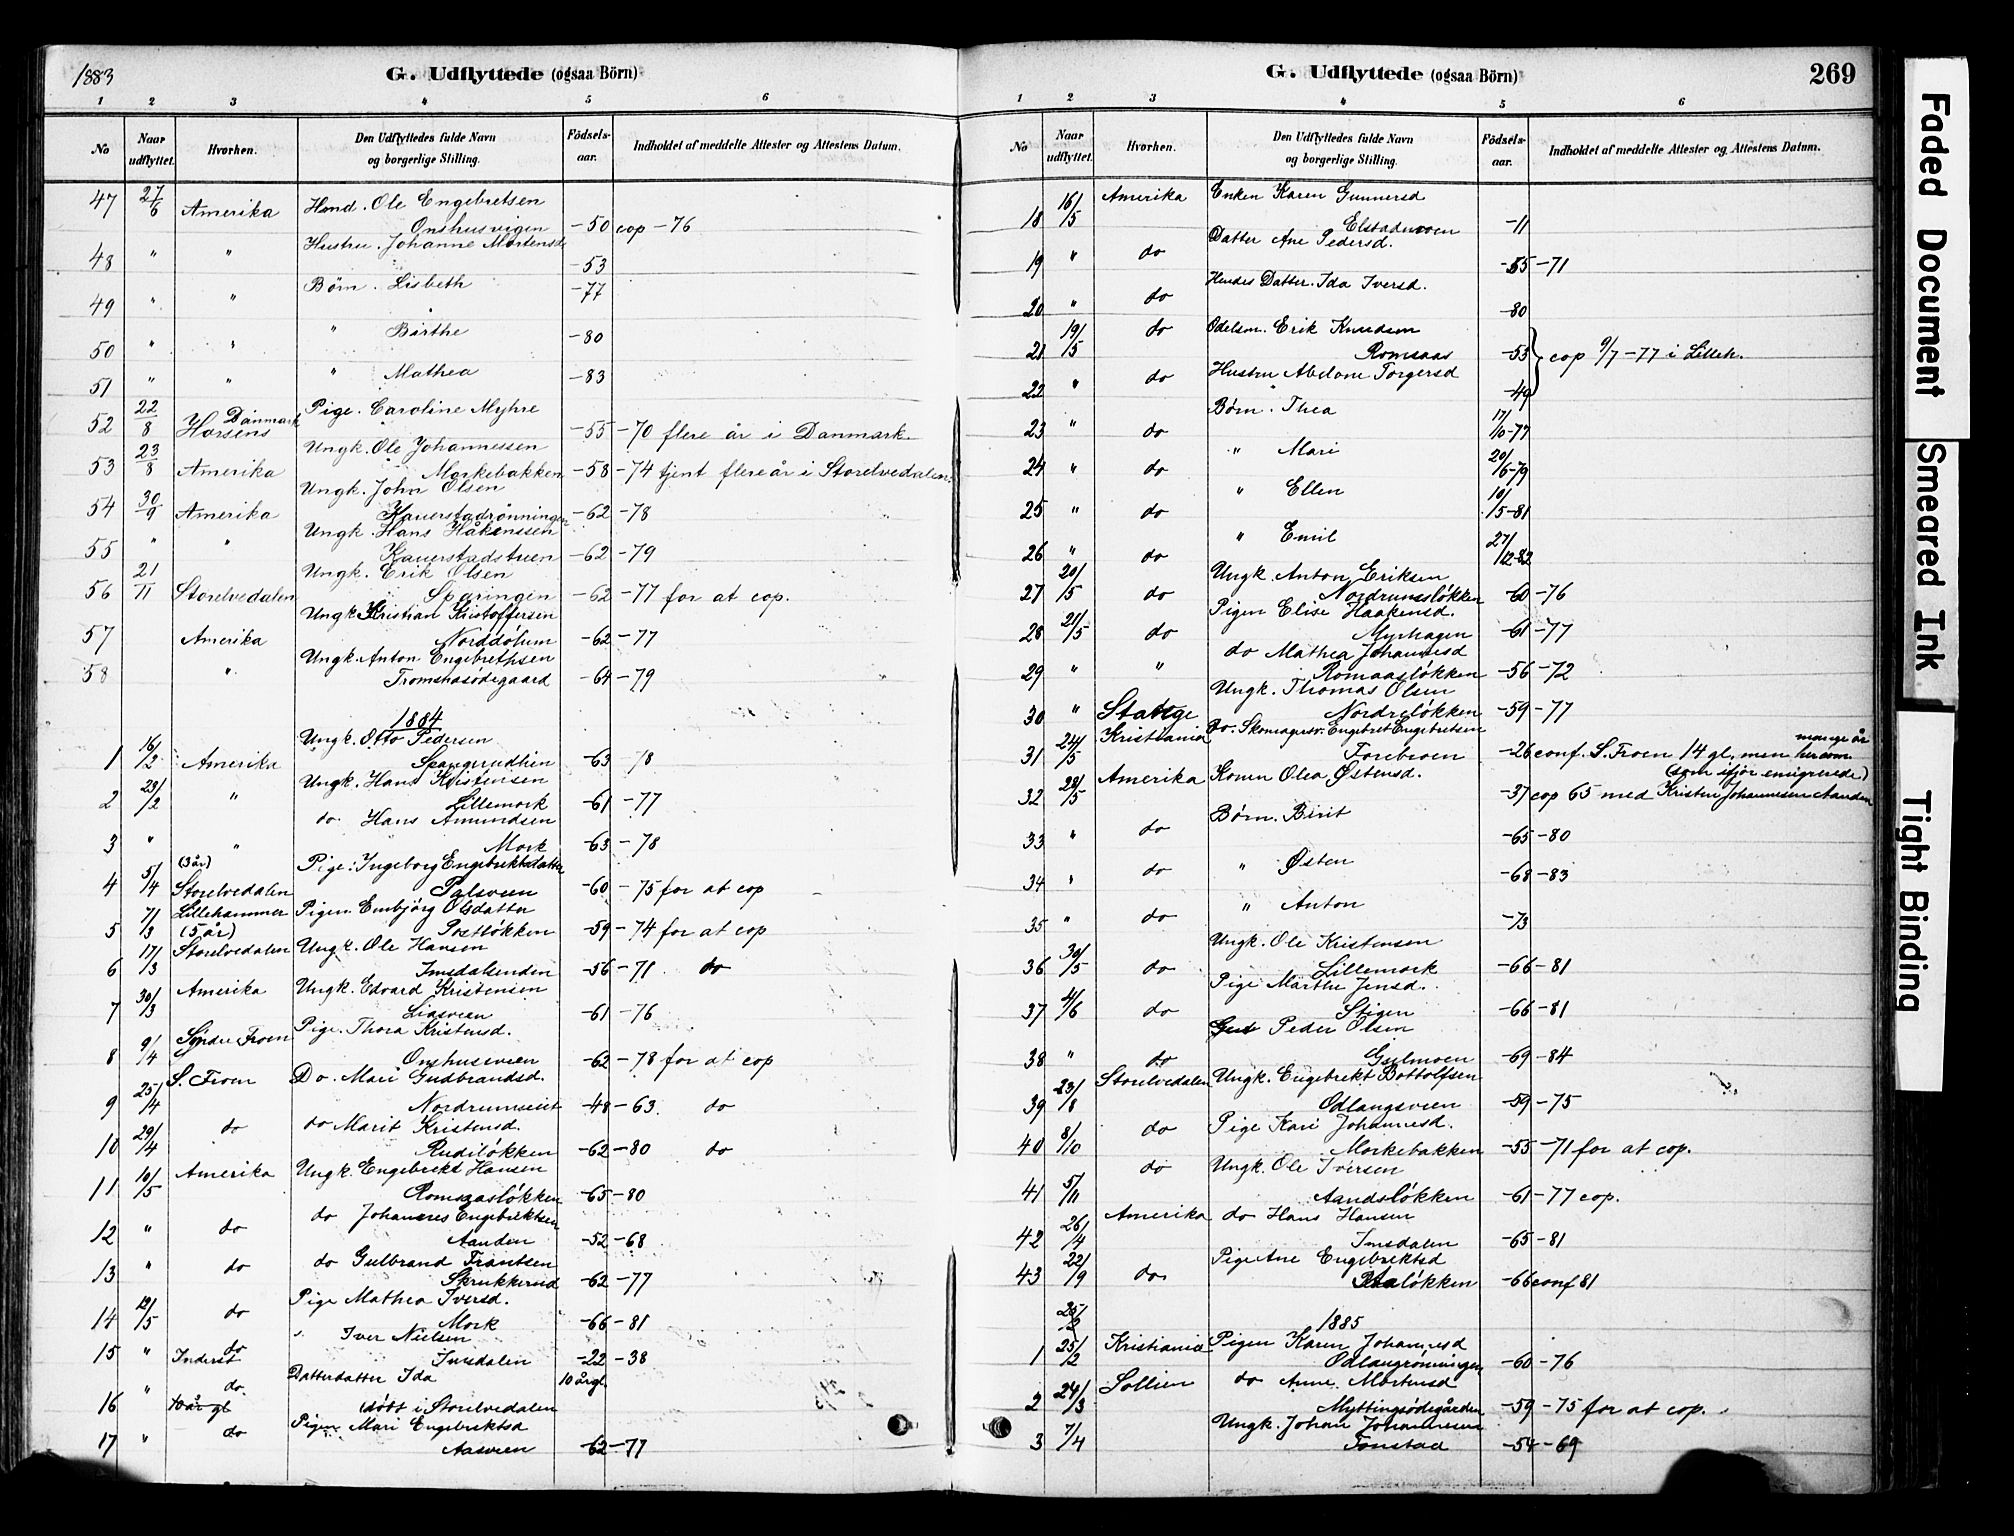 1883
G. Udflyttede (ogsaa Börn)
1 2 3 4 5 6
No Naar udflyttet. Hvorhen. Den Udflyttedes fulde Navn og borgerlige Stilling. Födsels-aar. Indholdet af meddelte Attester og Attestens Datum.
47 27/6 Amerika Hmd. Ole Engebretsen
Onshusvigen -50 cop -76
48 " " Hustru. Johanne Mortensd -53
49 " " Børn. Lisbeth -77
50 " " " Birthe -80
51 " " " Mathea -83
52 22/8 Danmark Horsens Pige. Caroline Myhre -55 -70 flere år i Danmark
53 23/8 Amerika Ungk. Ole Johannessen
Morkebakken -58 -74 tjent flere år i Storelvedalen.
54 30/9 Amerika Ungk. John Olsen
Kauerstadrönningen -62 -78
55 " " Ungk. Hans Håkenssen
Kauerstadstuen -62 -79
56 21/11 Storelvedalen Ungk. Erik Olsen
Skaringin -62 -77 for at cop.
57 Amerika Ungk. Kristian Kristoffersen
Norddölum -62 -77
58 " Ungk. Anton Engebrethsen
Tromshasödegaard -64 -79
1884
1 16/2 Amerika Ungk. Otto Pedersen
Spangrudlien -63 -78
2 23/2 " Ungk. Hans Kristensen
Lillemork -61 -77
3 " " do Hans Amundsen
Mork -63 -78
4 5/4 (3 år) Storelvedalen Pige: Ingeborg Engebrektsdatter
Palsveen -60 -75 for at cop
5 7/3 Lillehammer (5 år) Pigen Embjörg Olsdatter
Postløkken -59 -74 for at cop
6 17/3 Storelvedalen Ungk. Ole Hansen
Imsdalsenden -56 -71 do
7 30/3 Amerika Ungk. Edvard Kristensen
Liasveen -61 -76
8 9/4 Søndre Froen Pige. Thora Kristensd.
Onshusveen -62 -78 for at cop
9 25/4 S. Froen Do. Mari Gudbrandsd.
Nordrumseiet -48 -63 do
10 29/4 do do Marit Kristensd.
Rudiløkken -62 -80 do
11 10/5 Amerika Ungk. Engebrekt Hansen
Romsaasløkken -65 -80
12 " do do Johannes Engebrektsen
Aanden -52 -68
13 " do do Gulbrand Frantsen
Skrukkerud -62 -77
14 12/5 do Pige Mathea Iversd.
Mork -66 -81
15 " do Inderst Iver Nielsen
Imsdalen -22 -38
16 " do 10 år gl Datterdatter Ida 10 årgl
født i Storelvedalen
17 " do Pigen Mari Engebrektsd
Aasveen -62 -77
G. Udflyttede (ogsaa Börn) 269
1 2 3 4 5 6
No Naar udflyttet. Hvorhen. Den Udflyttedes fulde Navn og borgerlige Stilling. Födsels-aar. Indholdet af meddelte Attester og Attestens Datum.
18 16/5 Amerika Enken Karen Gunnersd
Elstadmoen -11
19 " do Datter Ane Pedersd. -55 -71
20 " do Hendes Datter. Ida Iversd. -80
21 19/5 do Odelsm. Erik Knudsen
Romsaas -55 } cop 9/7 -77 i Lilleh.
22 " do Hustru Abelone Torgersd -49
23 " do Børn. Thea 17/10-77
24 " do " Mari 20/6-79
25 " do " Ellen 10/5-81
26 " do " Emil 27/12-82
27 20/5 do Ungk. Anton Eriksen
Nordrumsløkken -60 -76
28 21/5 do Pigen Elise Haakensd.
Myrhagen -61 -77
29 " " do Mathea Johannesd
Romsaasløkken -56 -72
30 " Stange Ungk. Thomas Olsen
Nordreløkken -59 -77
31 24/5 Kristiania Do. Skomagersv. Engebret Engebretsen
Foreberen -26 conf. S. Froen 14 gl. men mange år herom
32 28/5 Amerika Konen Olea Østensd. -37 cop 65 med Kristen Johannesen Aanden (som ifjor emigrerede)
33 " do Børn. Birit -65 -80
34 " do " Østen -68 -83
35 " do " Anton -73
36 30/5 do Ungk. Ole Kristensen
Lillemork -66 -81
37 4/6 do Pige Marthe Jensd.
Stigen -66 -81
38 " do Gut Peder Olsen
Gulmoen -69 -84
39 23/8 Storelvedalen Ungk. Engebrekt Bottolfsen
Odlangsveen -59 -75
40 8/10 do Pige Kari Johannesd.
Morkebakken -55 -71 for at cop.
41 5/11 do Ungk. Ole Iversen
Aandsløkken -61 -77 cop.
42 26/4 Amerika do Hans Hansen
Imsdalen -65 -81
43 22/9 do Pige Ane Engebrektsd
løkken -66 conf 81
1885
1 25/2 Kristiania Pigen Karen Johannesd
Odlangrönningen -60 -76
2 24/3 Sollien do Anne Mortensd
Myttingsødegården -59 -75 for at cop.
3 7/4 Ungk. Johan Johannesen
Fonstad -54 -69
Faded Document
Smeared Ink
Tight Binding